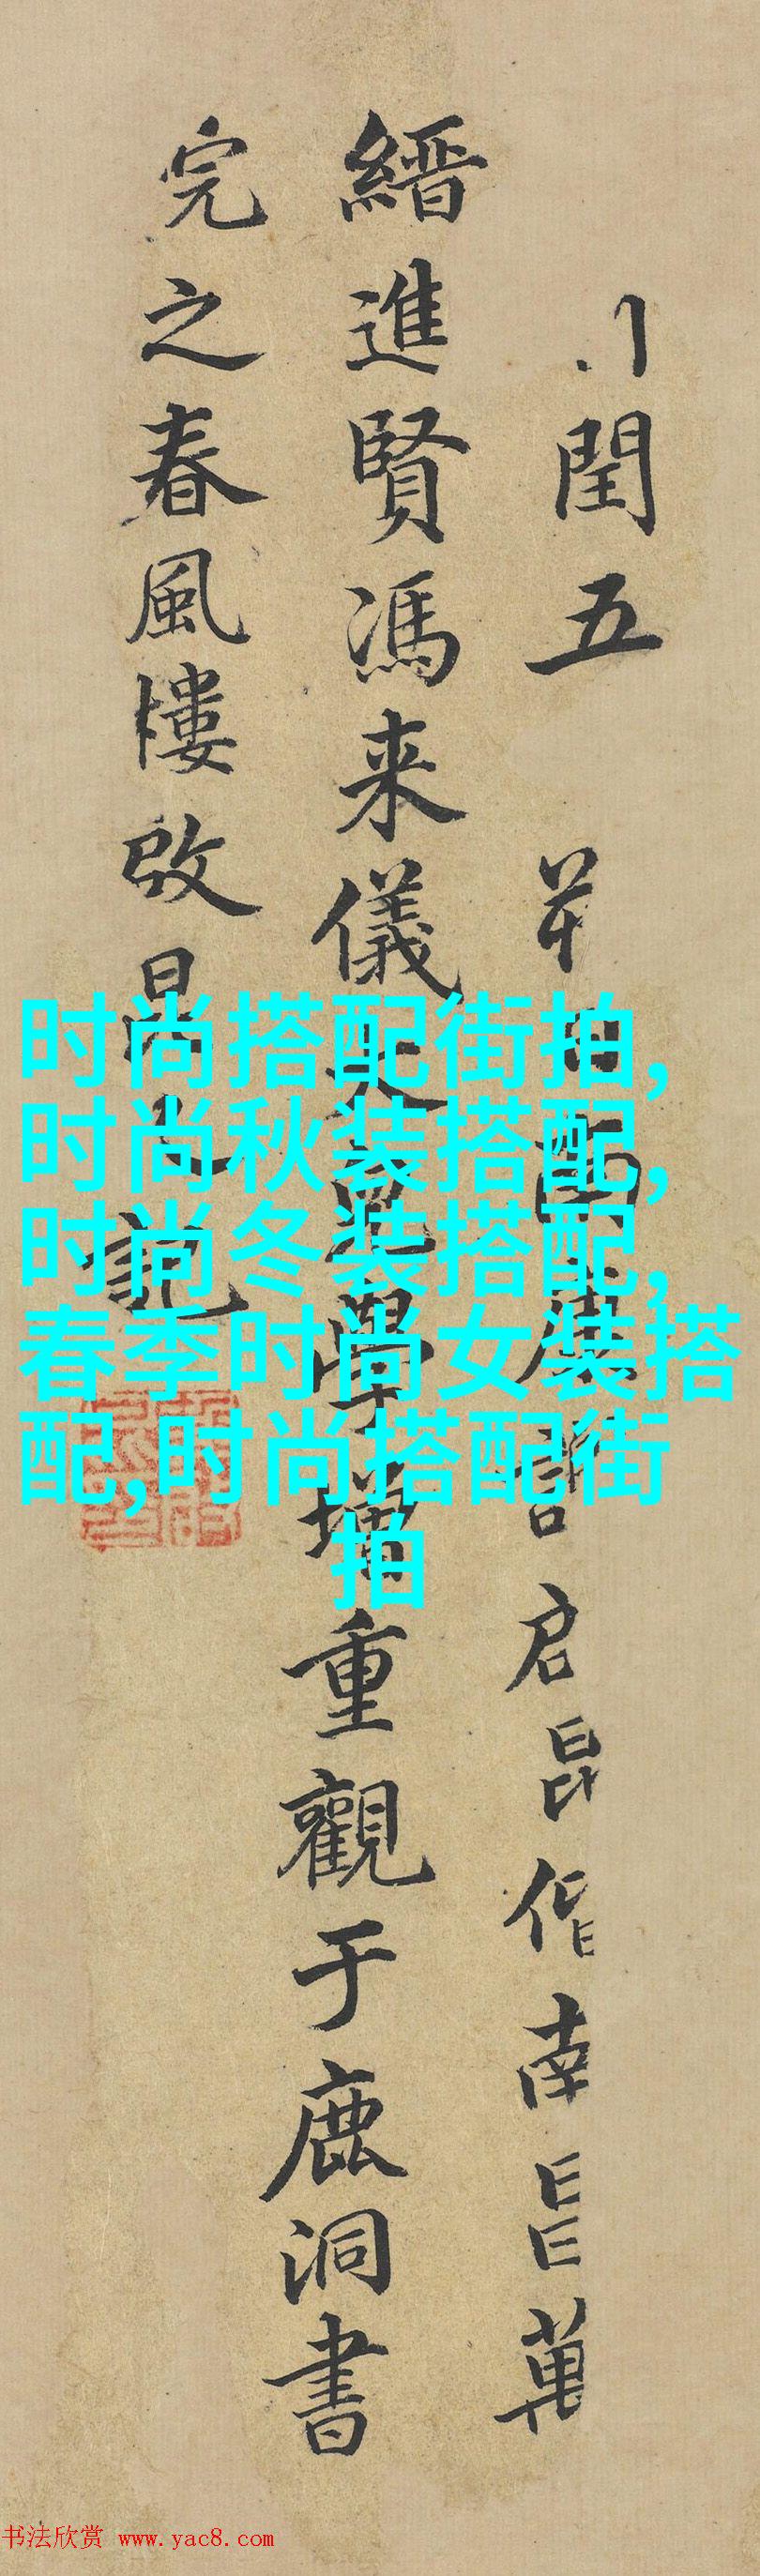 閏五
縉進賢馮来儀
學增重觀于鹿洞書
完之春風樓啟
記
启昆偕南昌萬
时尚搭配街拍,
时尚秋装搭配,
时尚冬装搭配,
春季时尚女装搭
配,时尚搭配街
拍
书法欣赏 www.yac8.com